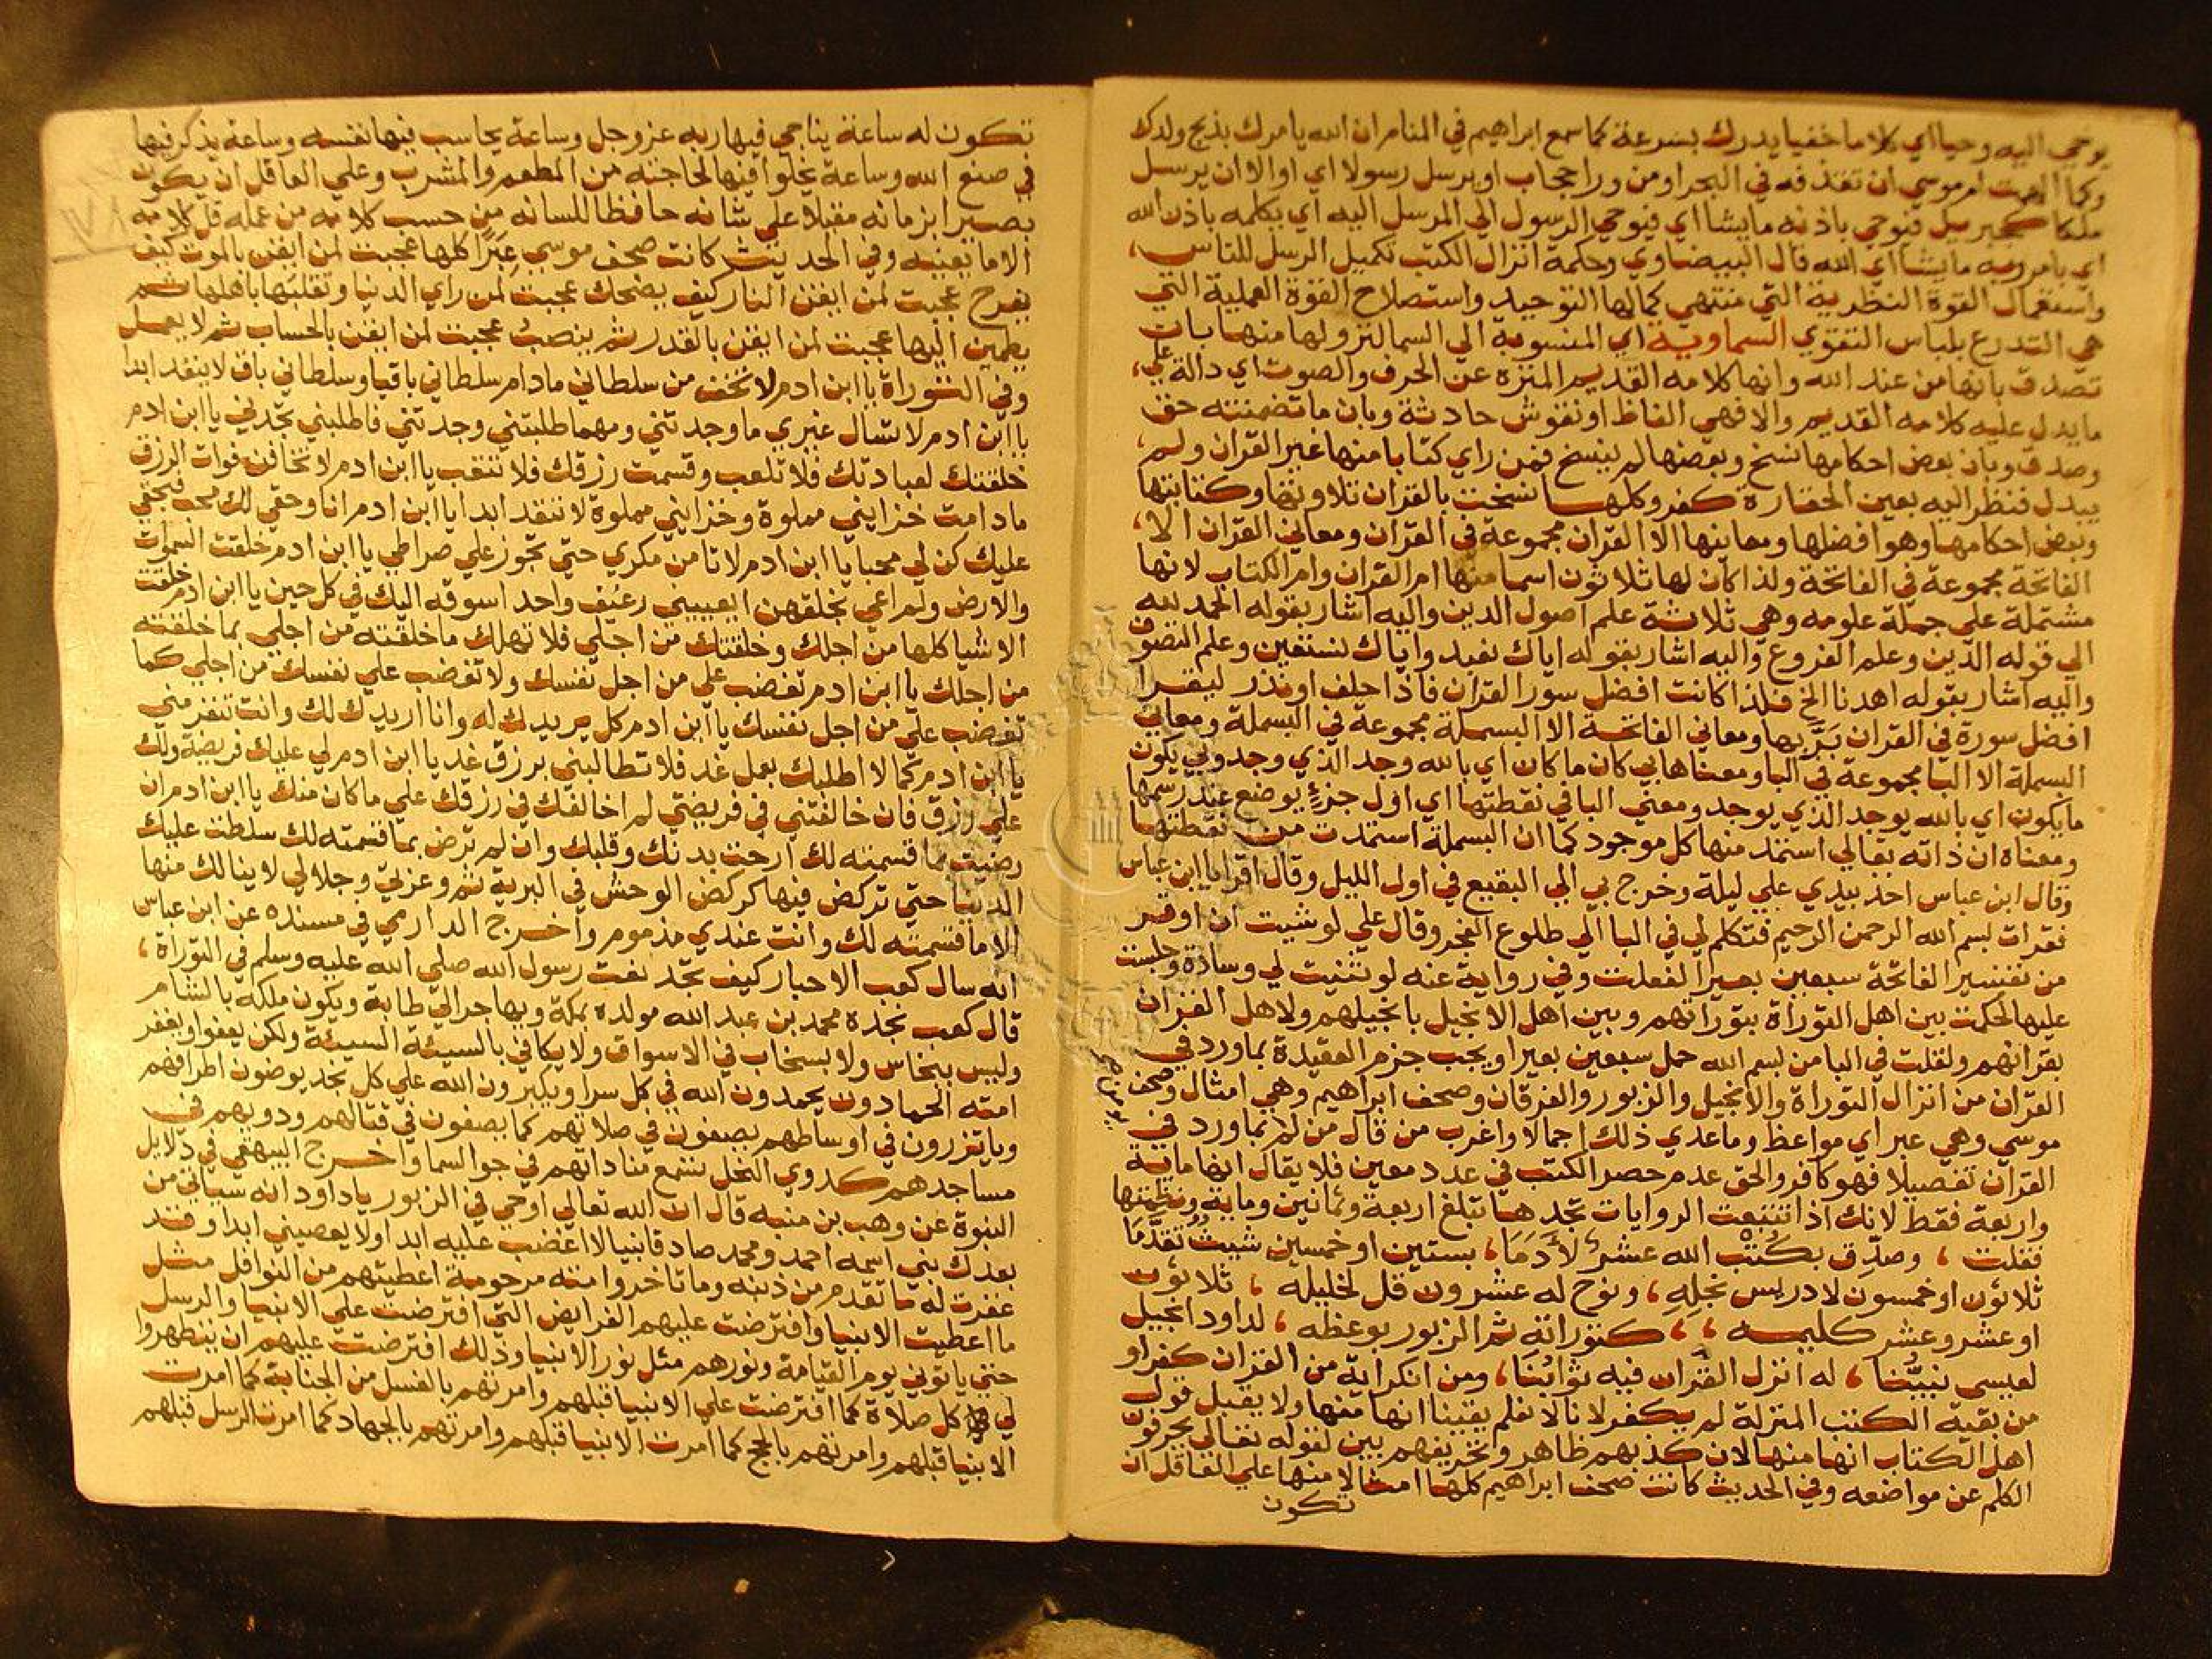 يوحي اليه وحيا اي كلاما خفيا يدرك بسرعة كما سمع ابراهيم في المنام ان الله يامرك بذبح ولدك
وكما الهمت ام موسي ان تقذفه في البحر او من ورا حجاب او يرسل رسولا اي او الا ان يرسل
ملكا كجبريل فيوحي باذنه ما يشا اي فيوحي الرسول الي المرسل اليه اي يكلمه باذن الله
اي بامر ربه ما يشا اي الله قال البيضاوي وحكمة انزال الكتب تكميل الرسل للناس،
واستعمال القوة النظرية التي منتهي كمالها التوحيد واستصلاح القوة العملية التي
هي التدرع بلباس التقوي السماوية اي المنسوبة الي السما لنزولها منها بان
تصدق بانها من عند الله وانها كلامه القديم المنزه عن الحرف والصوت اي دالة علي،
ما يدل عليه كلامه القديم والا فهي الفاظ او نقوش حادثة وبان ما تضمنته حق
وصدق وبان بعض احكامها نسخ وبعضها لم ينسخ فمن راي كتابا منها غير القران ولم،
يبدل فنظر اليه بعين الحقارة كفر وكلها نسخت بالقران تلاوتها وكتابتها
وبعض احكامها وهو افضلها ومعاينها الا القران مجموعة في القران ومعاني القران الا،
الفاتحة مجموعة في الفاتحة ولذا كان لها ثلاثون اسما منها ام القران وام الكتاب لانها
مشتملة علي جملة علومه وهي ثلاثة علم اصول الدين واليه اشار بقوله الحمد لله
الي قوله الدين وعلم الفروع واليه اشار بقوله اياك نعبد واياك نستعين وعلم التصوف
واليه اشار بقوله اهدنا الخ فلذا كانت افضل سور القران فاذا حلف او نذر ليقرا
افضل سورة في القران بَرَّ بها ومعاني الفاتحة الا البسملة مجموعة في البسملة ومعاني
البسملة الا البا مجموعة في البا ومعناها بي كان ما كان اي بالله وجد الذي وجد وبي يكون
ما يكون اي بالله يوجد الذي يوجد ومعني البا في نقطتها اي اول جزء يوضع عند رسمها
ومعناه ان ذاته تعالي استمد منها كل موجود كما ان البسملة استمدت من نقطتها
وقال ابن عباس اخذ بيدي علي ليلة وخرج بي الي البقيع في اول الليل وقال اقرا يا ابن عباس
فقرات بسم الله الرحمن الرحيم فتكلم لي في البا الي طلوع الفجر وقال علي لو شيت ان اوقر
من تفسير الفاتحة سبعين بعيرا لفعلت وفي رواية عنه لو ثنيت لي وسادة وجلست
عليها لحكمت بين اهل التوراة بتوراتهم وبين اهل الانجيل بانجيلهم ولاهل القران
بقرانهم ولقلت في البا من بسم الله حمل سبعين بعيرا ويجب جزم العقيدة بما ورد في
القران من انزال التوراة والانجيل والزبور والفرقان وصحف ابراهيم وهي امثال وصحف
موسي وهي عبر اي مواعظ وما عدي ذلك اجمالا واغرب من قال من لم بما ورد في
القران تفصيلا فهو كافر والحق عدم حصر الكتب في عدد معين فلا يقال انها ماية
واربعة فقط لانك اذا تتبعت الروايات تجدها تبلغ اربعة وثمانين وماية ونظمتها
فقلت ، وصدّق بكُتْب الله عشرٌ لآدَمَا، بستين او خمسين شيث تقدّما
ثلاثون او خمسون لادريس نجله، ونوح له عشرون قل لخليله ، ثلاثون
او عشر وعشر كليمه ، ، كتوراته ثم الزبور بوعظه ، لداود انجيل
لعيسي نبيُّنا ، له انزل القران فيه ثوابُنا، ومن انكر اية من القران كفر او
من بقية الكتب المنزلة لم يكفر لانا لا نعلم يقينا انها منها ولا يقبل قول
اهل الكتاب انها منها لان كذبهم ظاهر وتحريفهم بين لقوله تعالي يحرفون
الكلم عن مواضعه وفي الحديث كانت صحف ابراهيم كلها امثالا منها علي العاقل ان
تكون
تكون له ساعة يناجي فيها ربه عز وجل وساعة يحاسب فيها نفسه وساعة يذكر فيها
في صنع الله وساعة يخلوا فيها لحاجته من المطعم والمشرب وعلي العاقل ان يكون
بصيرا بزمانه مقبلا علي شانه حافظا للسانه من حسب كلامه من عمله قل كلامه
الا ما يعنيه وفي الحديث كانت صحف موسي عِبَرًا كلها عجبت لمن ايقن بالموت كيف
يفرح عجبت لمن ايقن النار كيف يضحك عجبت لمن راي الدنيا وتقلبها باهلها ثم
يطمين اليها عجبت لمن ايقن بالقدر ثم ينصبُ عجبت لمن ايقن بالحساب ثم لا يعمل
وفي التوراة يا ابن ادم لا تخف من سلطاني مادام سلطاني باقيا وسلطاني باق لا ينفد ابدا
يا ابن ادم لا تسال غيري ما وجدتني ومهما طلبتني وجدتني فاطلبني تجدني يا ابن ادم
خلقتك لعبادتك فلا تلعب وقسمت رزقك فلا تتعب يا ابن ادم لا تخافن فوات الرزق
مادامت خزايني مملوة وخزايني مملوة لا تنفد ابدا يا ابن ادم انا وحقي لك محب فبحقي
عليك كن لي محبا يا ابن ادم لا تامن مكري حتي تجوز علي صراطي يا ابن ادم خلقت السموات
والارض ولم اعي بخلقهن ايعييني رغيف واحد اسوقه اليك في كل حين يا ابن ادم خلقت
الاشيا كلها من اجلك وخلقتك من اجلي فلا تهلك ما خلقته من اجلي بما خلقته
من اجلك يا ابن ادم تغضب علي من اجل نفسك ولا تغضب علي نفسك من اجلي كما
تغضب علي من اجل نفسك يا ابن ادم كل يريدك له وانا اريدك لك وانت تنفر مني
يا ابن ادم كما لا اطلبك بعمل غد فلا تطالبني برزق غد يا ابن ادم لي عليك فريضة ولك
علي رزق فان خالفتني في فريضتي لم اخالفك في رزقك علي ما كان منك يا ابن ادم ان
رضيت بما قسمته لك ارحت بدنك وقلبك وان لم ترض بما قسمته لك سلطت عليك
الدنيا حتي تركض فيها كركض الوحش في البرية ثم وعزتي وجلالي لا ينالك منها
الا ما قسمته لك وانت عندي مذموم واخرج الدارمي في مسنده عن ابن عباس
انه سال كعب الاحبار كيف تجد نعت رسول الله صلي الله عليه وسلم في التوراة ،
قال كعب نجده محمد بن عبد الله مولده بمكة ويهاجر الي طابة ويكون ملكه بالشام
وليس بنخاس ولا بسخاب في الاسواق ولا يكافي بالسيئة السيئة ولكن يعفوا ويغفر
امته الحمادون يحمدون الله في كل سرا ويكبرون الله علي كل نجد يوضون اطرافهم
وياتزرون في اوساطهم يصفون في صلاتهم كما يصفون في قتالهم ودويهم في
مساجدهم كدوي النحل تسمع مناداتهم في جو السما واخرج البيهقي في دلايل
النبوة عن وهب بن منبه قال ان الله تعالي اوحي في الزبور يا داود انه سياتي من
بعدك نبي اسمه احمد ومحمد صادقا نبيا لا اغضب عليه ابدا ولا يعصيني ابدا وقد
غفرت له ما تقدم من ذنبه وما تاخر وامته مرحومة اعطيتهم من النوافل مثل
ما اعطيت الانبيا وافترضت عليهم الفرايض التي افترضت علي الانبيا والرسل
حتي ياتوني يوم القيامة ونورهم مثل نور الانبيا وذلك افترضت عليهم ان يتطهروا
لي كل صلاة كما افترضت علي الانبيا قبلهم وامرتهم بالغسل من الجنابة كما امرت
الانبيا قبلهم وامرتهم بالحج كما امرت الانبيا قبلهم وامرتهم بالجهاد كما امرت الرسل قبلهم